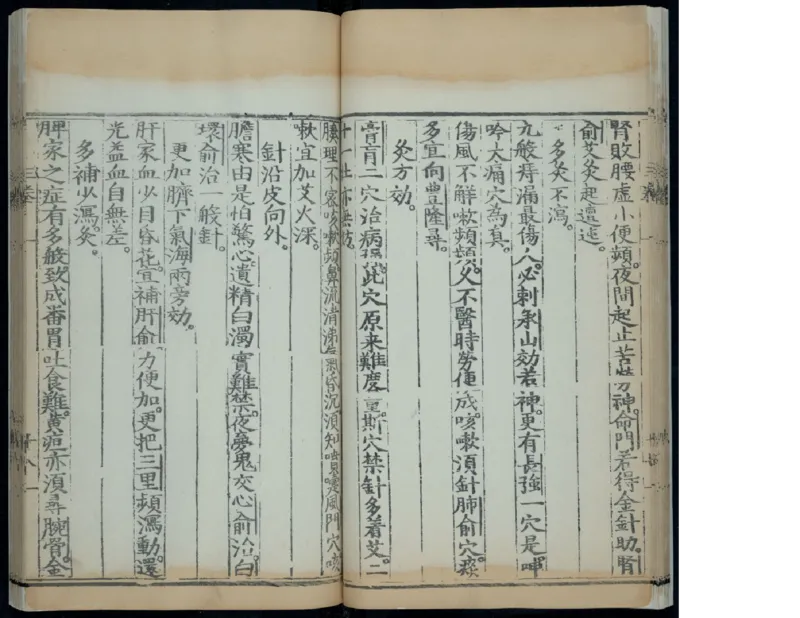 腎敗腰虛小便頻。夜間起止苦勞神。命門若得金針助。腎
俞艾灸起邅迍。
多灸不瀉。
九般痔漏最傷人。必刺承山効若神。更有長強一穴是。呻
吟大痛穴為真。
傷風不解嗽頻頻。久不醫時勞便成。咳嗽須針肺俞穴。痰
多宜向豊隆尋。
灸方効。
膏肓二穴治病強。此穴原来難度量。斯穴禁針多着艾。二
十一壯亦無妨。
腠理不密咳嗽頻。鼻流清涕氣昏沉。須知嚏噴風門穴。咳
嗽宜加艾火深。
針沿皮向外。
膽寒由是怕驚心。遺精白濁實難禁。夜夢鬼交心俞治。白
環俞治一般針。
更加臍下氣海兩旁効。
肝家血少目昏花。宜補肝俞力便加。更把三里頻瀉動。還
光益血自無差。
多補少瀉。灸。
脾家之症有多般。致成番胃吐食難。黃疸亦須尋腕骨。金